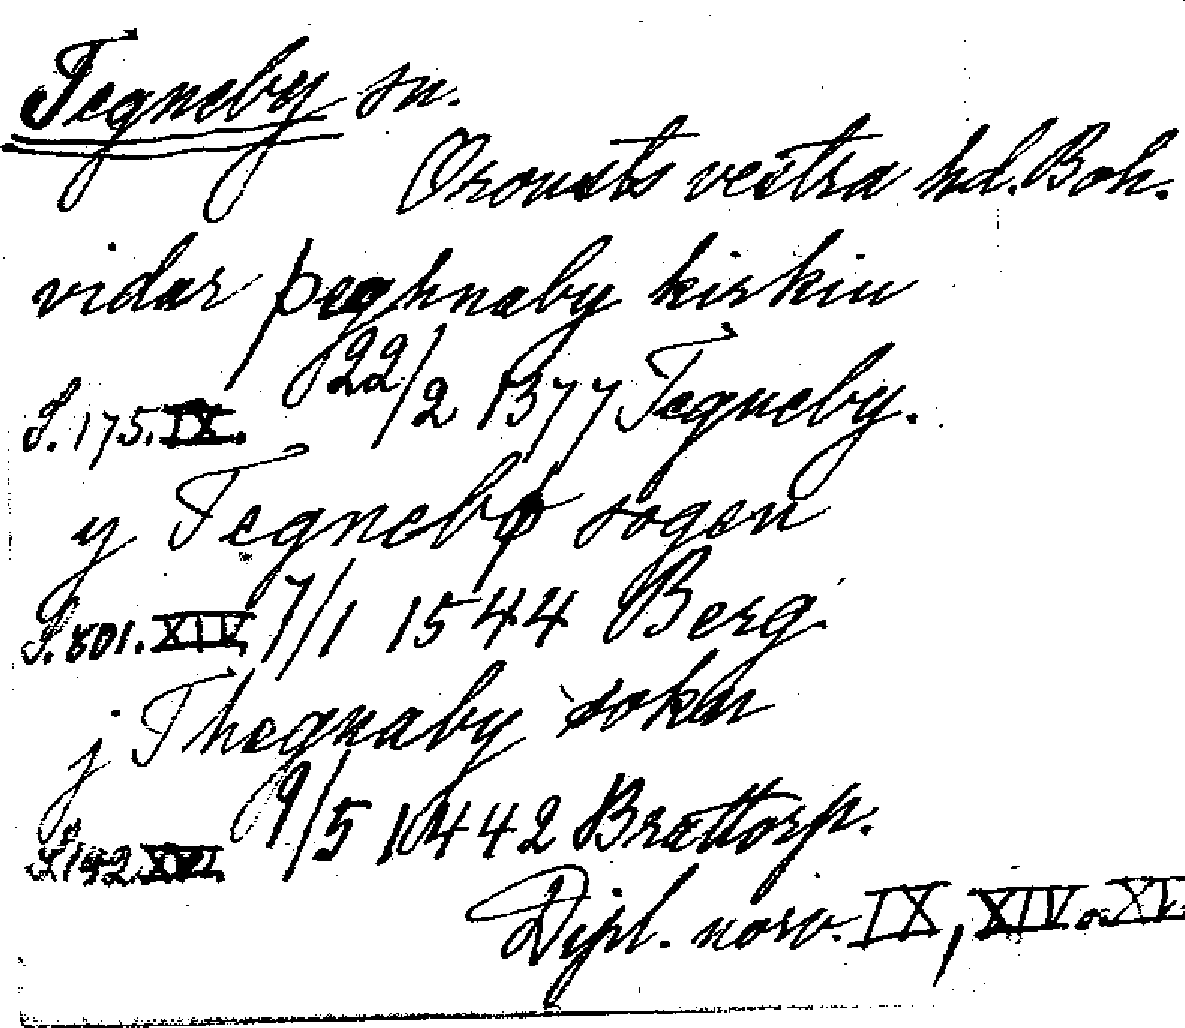 Tegneby sn.
Orousts vestra hd. Boh.
vidar þeghnaby kirkiu
22/2 1377 Tegneby.
S. 175. IX.
y Tegnebø sogen
S. 801. XIV 7/1 1544 Berg
j Thegnaby sokn
9/5 1442 Brættorp.
S. 142 XVI.
Dipl. norv. IX, XIV o. XVI